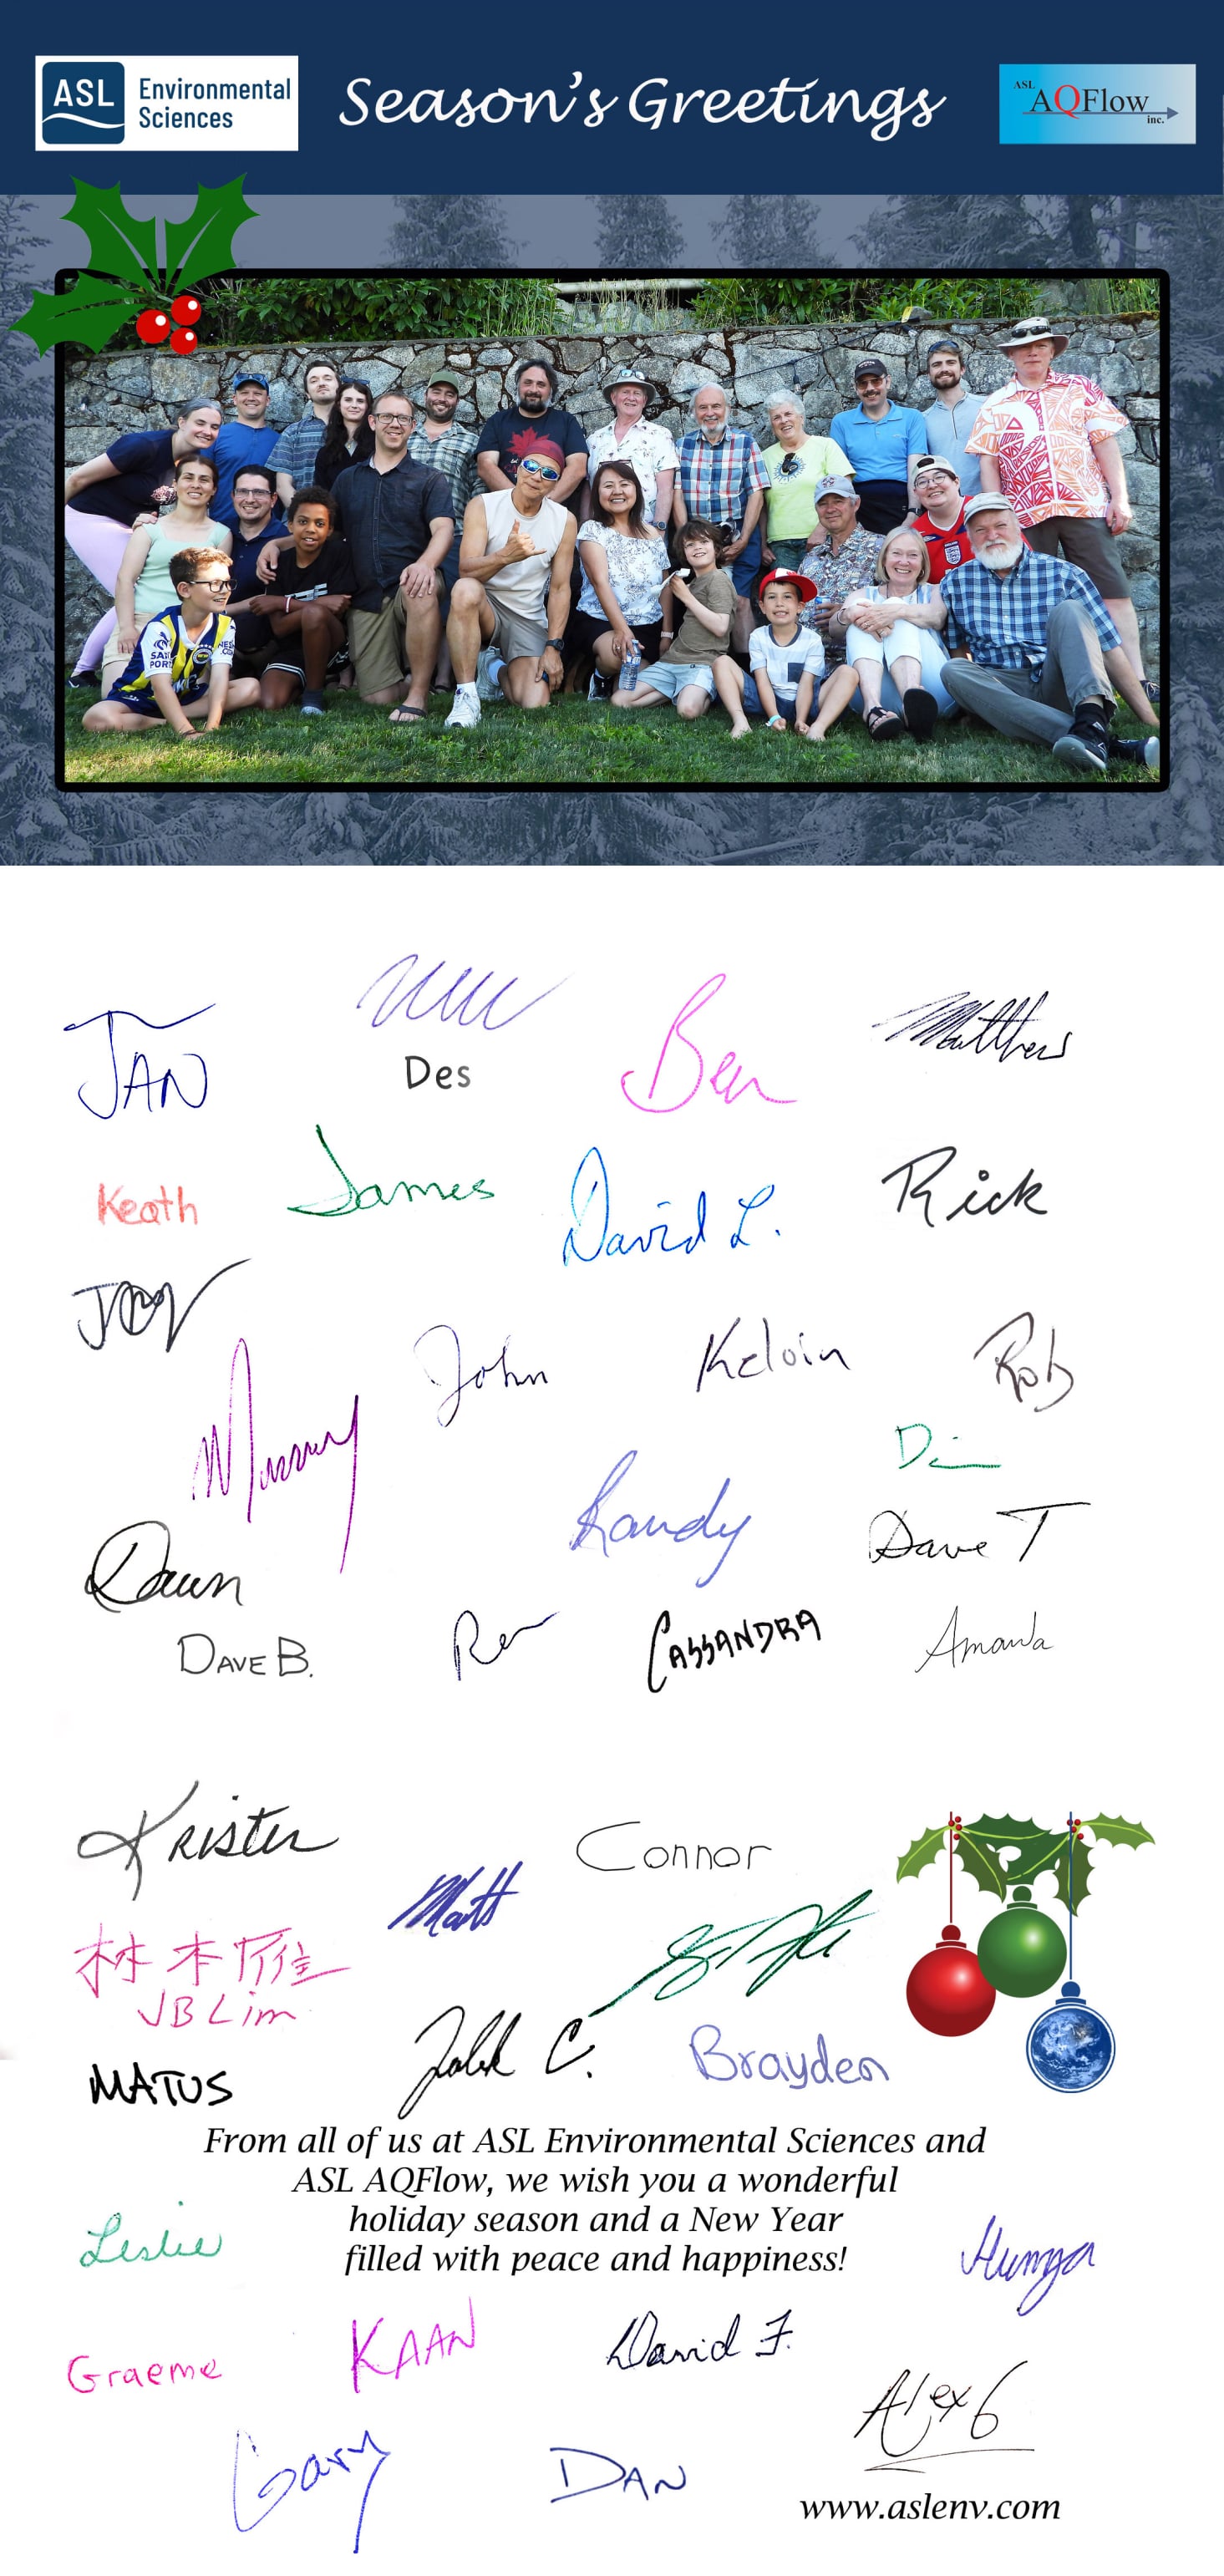 ASL Environmental Sciences
Season's Greetings
ASL AQFlow inc.
JAN
Des
Ben
Matthew
Keath
James
David L.
Rick
John
Kelvin
Rob
Murray
Randy
Dave T
Dawn
DAVE B.
CASSANDRA
Amanda
Krister
Connor
Matt
JB Lim
MATUS
Brayden
From all of us at ASL Environmental Sciences and
ASL AQFlow, we wish you a wonderful
holiday season and a New Year
filled with peace and happiness!
Leslie
Graeme
KAAN
David F.
Alex G
Gary
DAN
www.aslenv.com